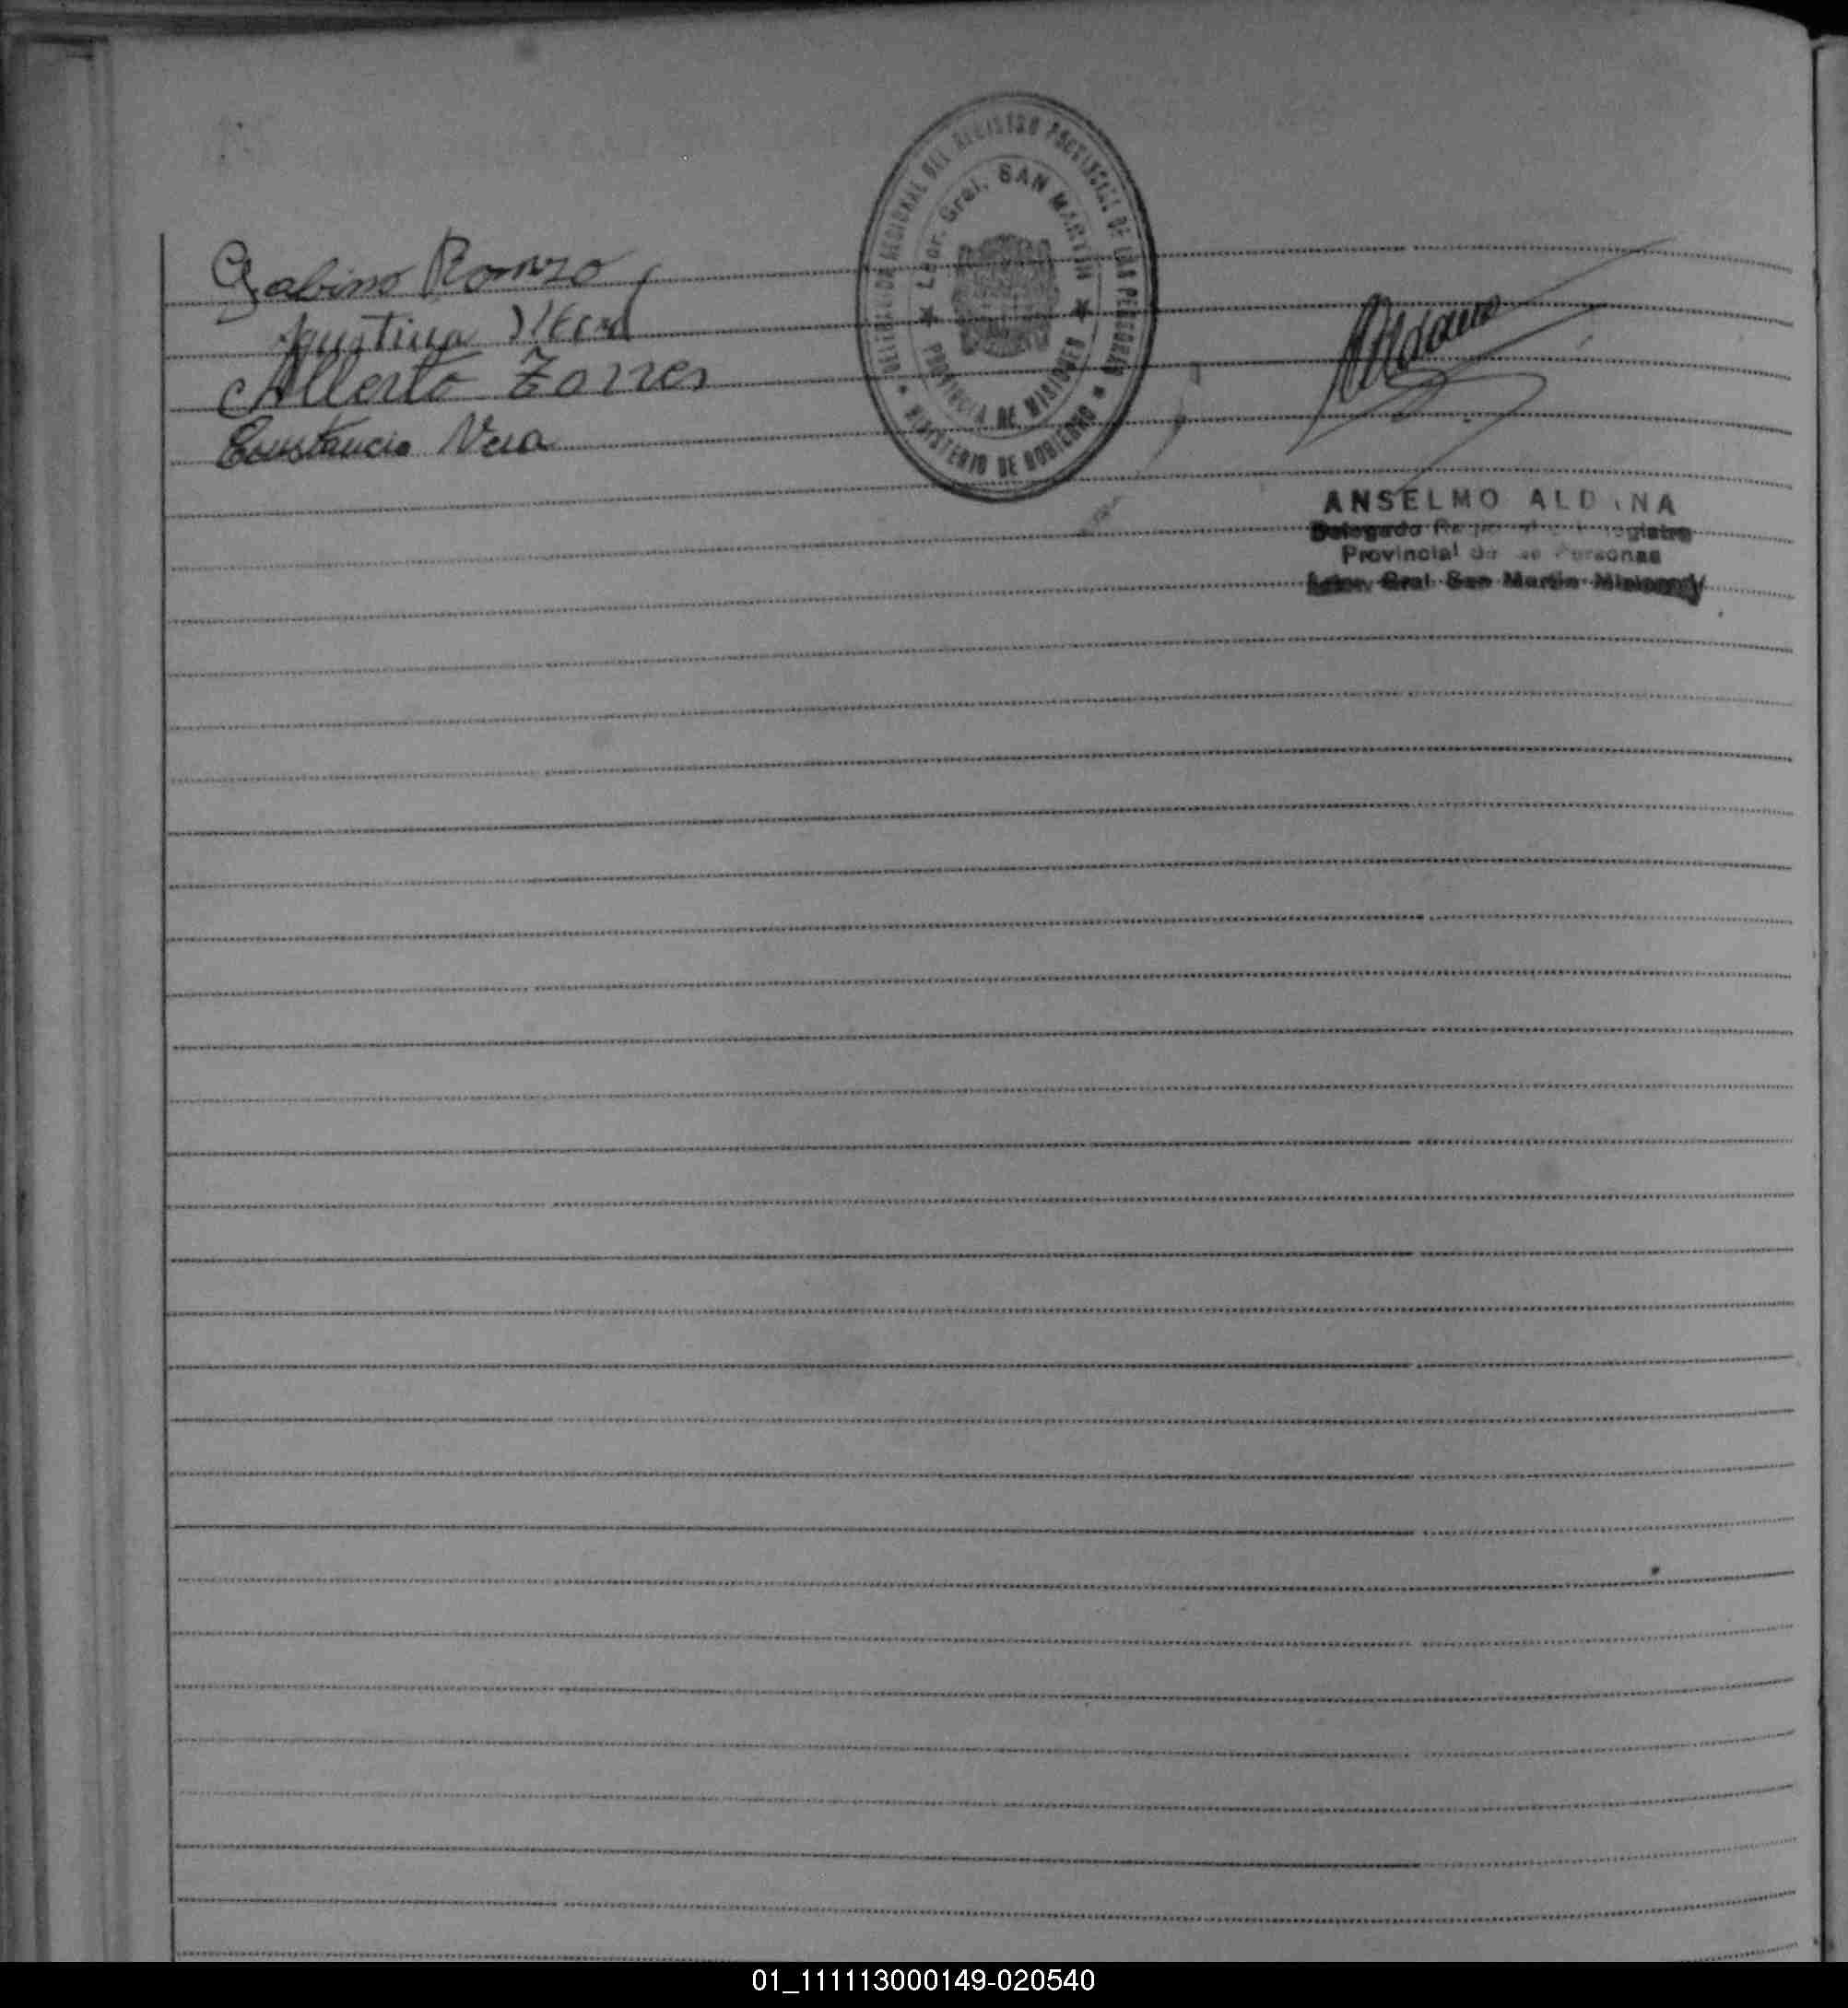 Gabino
Agustina
Alberto Torres
Constancio Vera
DELEGACION REGIONAL DEL REGISTRO PROVINCIAL DE LAS PERSONAS
Ldor. Gral. SAN MARTIN
PROVINCIA DE MISIONES
MINISTERIO DE GOBIERNO
ANSELMO ALD NA
Delegado
Provincial Personas
Ldor. Gral San Martin Misiones
01_111113000149-020540